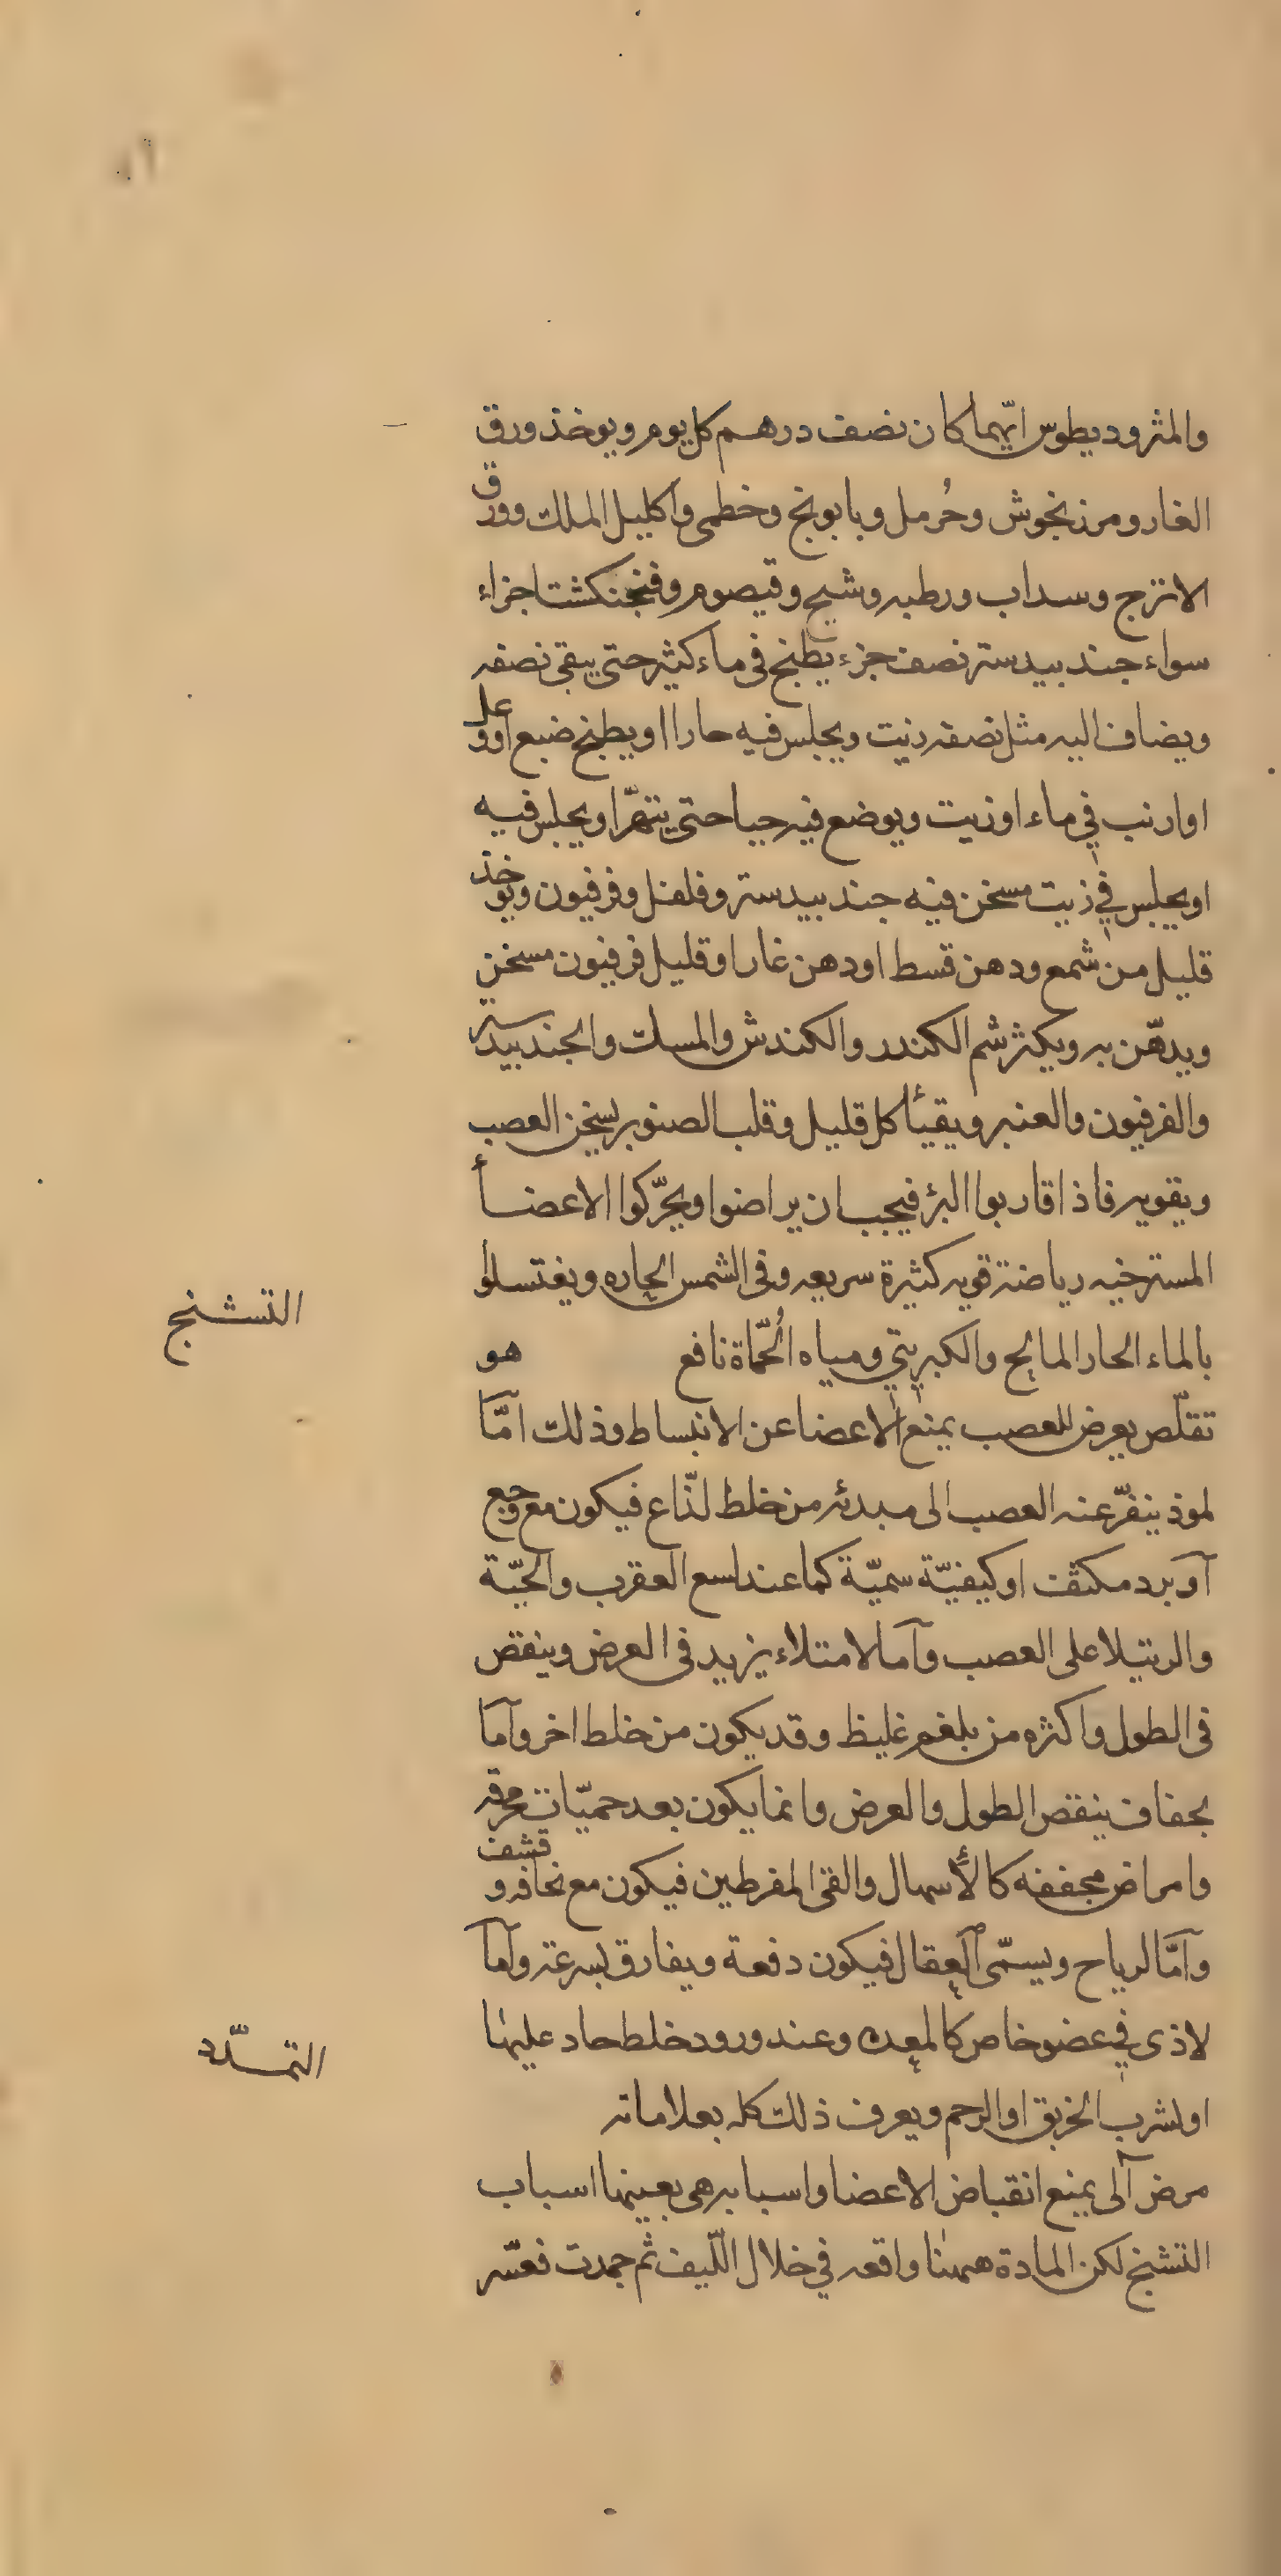 والمثروديطوس ايّهما كان نصف درهم كل يوم ويوخذ ورق
الغار ومرزنجوش وحُرمل وبابونج وخطمى واكليل الملك وورق
الاترج وسداب ورطبه وشيح وقيصوم وفنجنكشت اجزاء
سواء جندبيدستر نصف جزء يطبخ فى ماء كثير حتى يبقى نصفه
ويضاف اليه مثل نصفه زيت ويجلس فيه حارا او يطبخ ضبع او وعل
او ارنب في ماء او زيت ويوضع فيه حيا حتى يتهرّا ويجلس فيه
او يجلس في زيت مسخن فيه جندبيدستر وفلفل وفرفيون ويوخذ
قليل من شمع ودهن قسط او دهن غار او قليل فرفيون مسخن
ويدهّن به ويكثر شم الكندر والكندش والمسك والجندبيدستر
والفرفيون والعنبر ويقيئا كل قليل وقلب الصنوبر يسخن العصب
ويقويه فاذا قاربوا البرؤ فيجب ان يراضوا ويحرّكوا الاعضأ
المسترخيه رياضة قويه كثيرة سريعه وفى الشمس الحاره ويغتسلوا
بالماء الحار المالح والكبريتي ومياه الحُمّاة نافع هو
التشنج
تقلّص يعرض للعصب يمنع الاعضا عن الانبساط وذلك امّا
لموذ ينفرّ عنه العصب الى مبدئه من خلط لذّاع فيكون مع وجع
آو برد مكثف او كيفيّة سميّة كما عند لسع العقرب والحيّة
والرتيلا على العصب وآما لامتلاء يزيد فى العرض وينقص
فى الطول واكثره من بلغم غليظ وقد يكون من خلط اخر وآما
لجفاف ينقص الطول والعرض وانما يكون بعد حميّات محرقه
وامراض مجففه كالأسهال والقئ المفرطين فيكون مع نحافه وقشف
وآمّا لرياح ويسمّى العقال فيكون دفعة ويفارق بسرعة وآما
لاذى في عضو خاص كالمعده وعند ورود خلط حاد عليها
او لشرب الخربق او الرحم ويعرف ذلك كله بعلاماته
التمدّد
مرض آلى يمنع انقباض الاعضا واسبابه هى بعينها اسباب
التشنج لكن المادة ههنا واقعه في خلال اللّيف ثم جمدت فعسّر